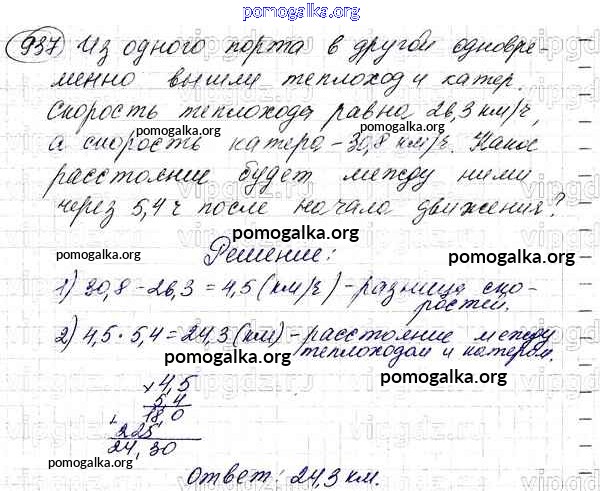 pomogalka.org
937 Из одного порта в другой одновре-
менно вышли теплоход и катер.
pomogalka.org
Скорость теплохода равна 26,3 км/ч,
pomogalka.org
а скорость катера - 30,8 км/ч. Какое
pomogalka.org
расстояние будет между ними
pomogalka.org
через 5,4 ч после начала движения?
pomogalka.org
Решение:
pomogalka.org
1) 30,8 - 26,3 = 4,5 (км/ч) - разница ско-
ростей.
pomogalka.org
2) 4,5 · 5,4 = 24,3 (км) - расстояние между
теплоходом и катером.
pomogalka.org
× 4,5
5,4
pomogalka.org
180
+ 225
24,30
pomogalka.org
Ответ: 24,3 км.
pomogalka.org